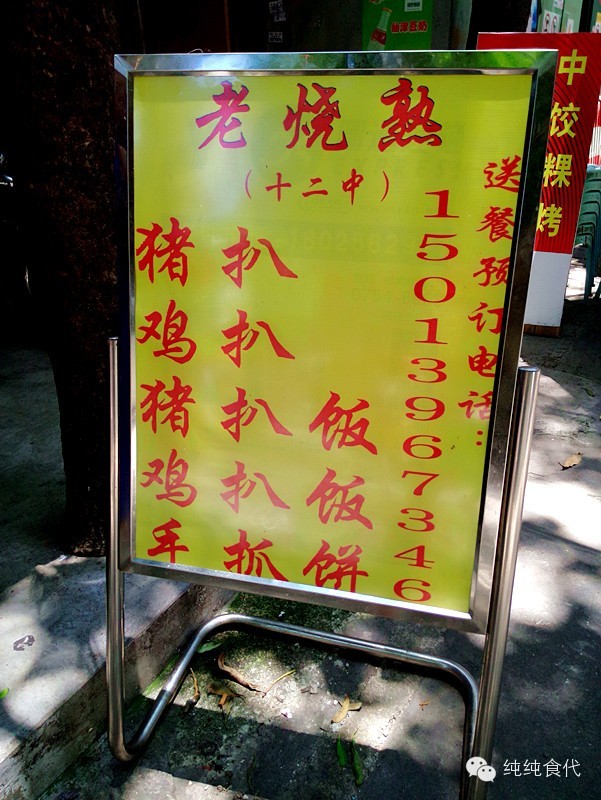 老烧熟
（十二中）
猪扒
鸡扒
猪扒饭
鸡扒饭
手抓饼
送餐预订电话：
15013967346
中
饺
粿
烤
纯纯食代